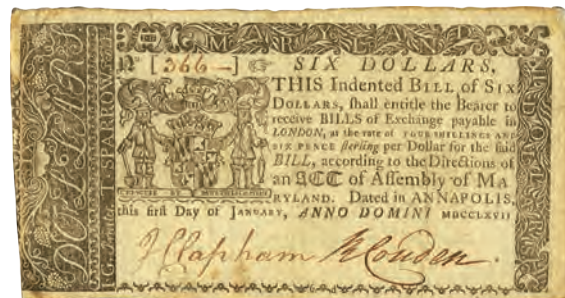 MARYLAND
DOLLARS
T. SPARROW
No [366] SIX DOLLARS.
THIS Indented BILL of SIX
DOLLARS, shall entitle the Bearer to
receive BILLS of Exchange payable in
LONDON, at the rate of FOUR SHILLINGS AND
SIX PENCE sterling per Dollar for the said
BILL, according to the Directions of
an ACT of Assembly of MA
RYLAND. Dated in ANNAPOLIS,
this first Day of JANUARY, ANNO DOMINI MDCCLXVII
J Clapham R Couden.